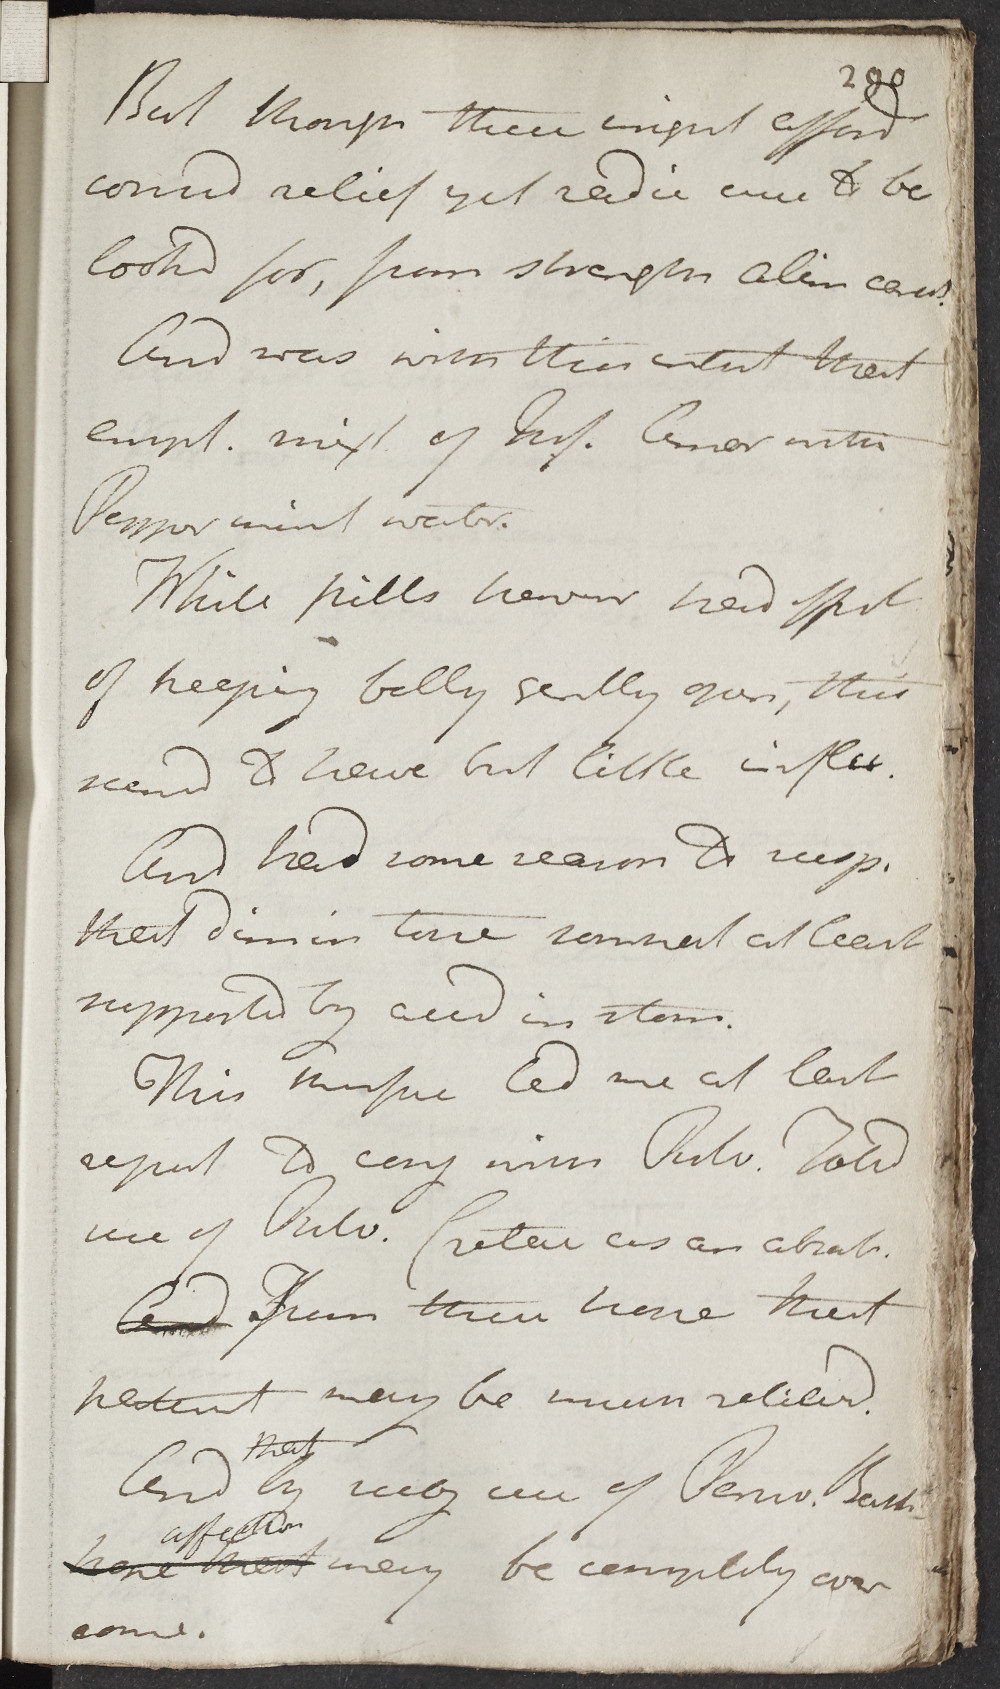 200
But though these might afford
consid relief yet radic cure to be
lookd for, from strength alim canal.
And was with this intent that
empl. mixt of Inf. Amar with
Peppermint water.
While pills however had effect
of keeping belly gently open, this
seemd to have but little influ.
And had some reason to susp.
that dimin tone somwhat at least
supported by acid in stom.
This therefore led me at last
report to conj with Pulv. Told
use of Pulv. Cretae as an absorb.
And From these hope that
patient may be much relievd.
And that by subseq use of Peruv. Bark
affection
hope that may be completely over
come.